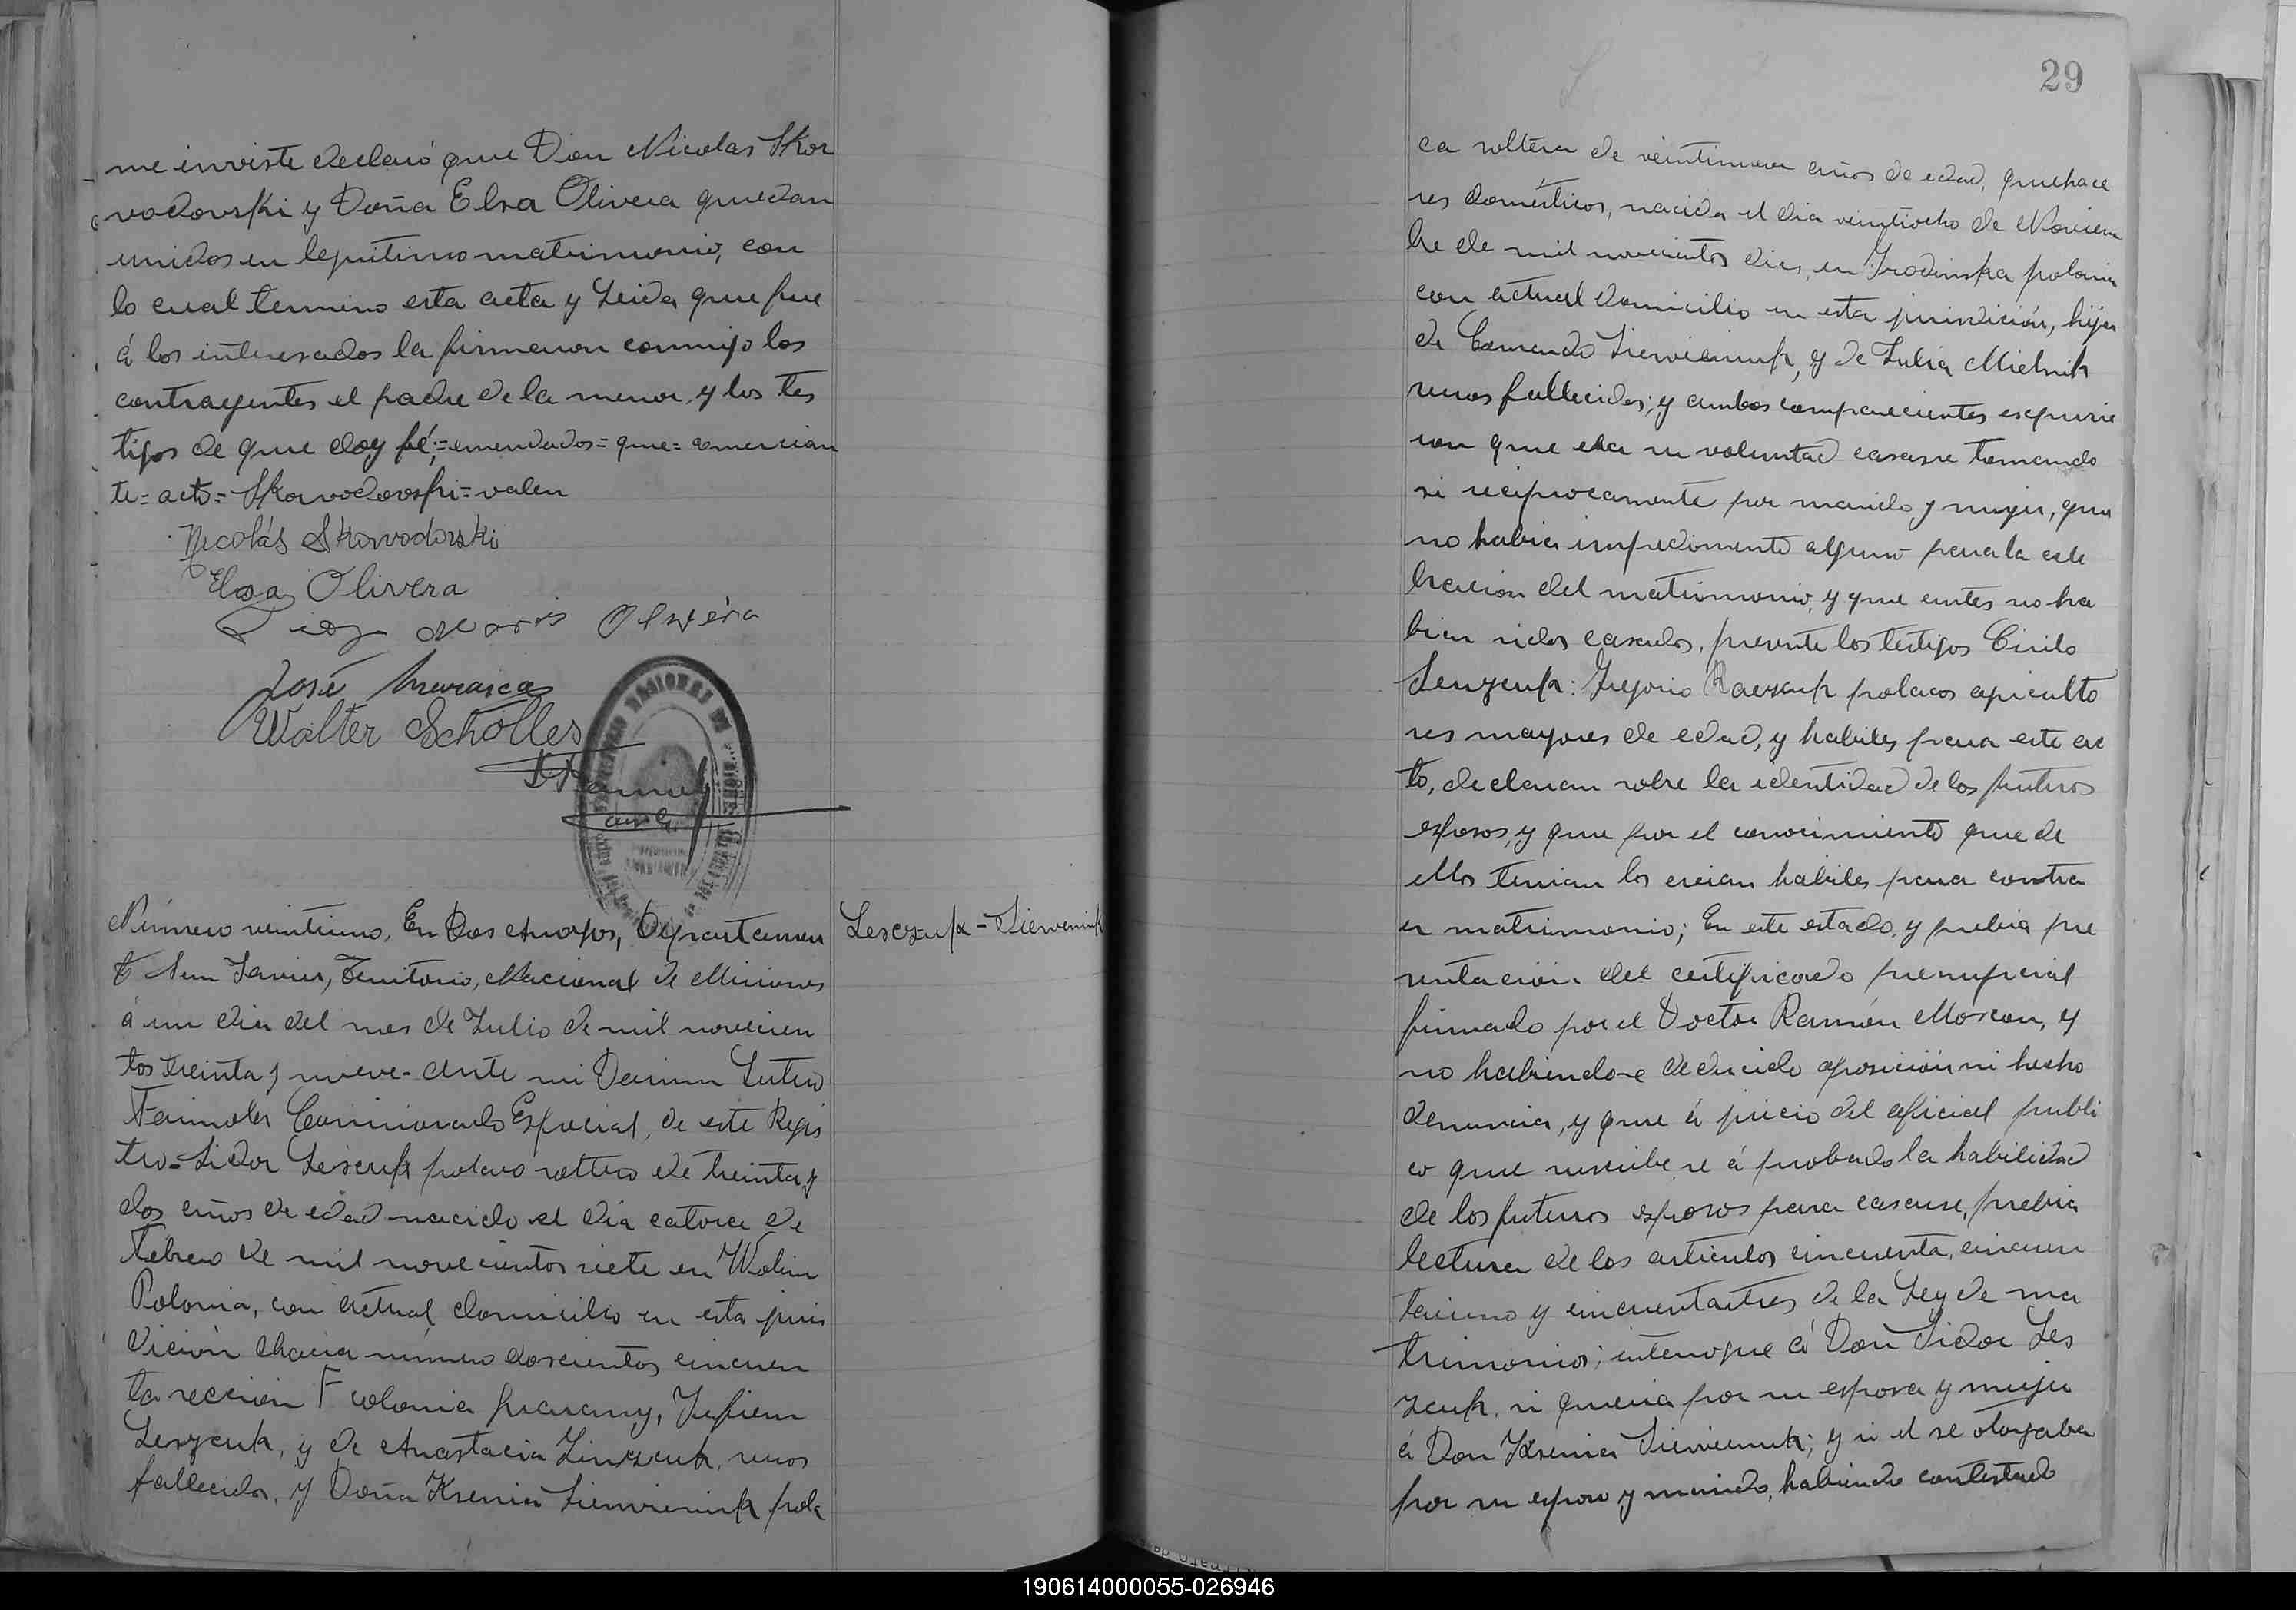 me inviste declaró que Don Nicolas Skor
vodovski y Doña Elsa Olivera quedan
unidos en legitimo matrimonio, con
lo cual termino esta acta y Leida que fue
á los interesados la firmaron conmigo los
contrayentes el padre de la menor, y los tes
tigos de que doy fé;=emendados=que=comercian
te=acto=Skorvodovski=valen
Nicolás Skorvodovski
Elsa Olivera
Olivera
José
Walter Scholles
Número veintiuno, En Dos Arroyos, Departamen
to San Javier, Territorio, Nacional de Misiones
á un dia del mes de Julio de mil novecien
tos treinta y nueve-Ante mi
Comisionado Especial, de este Regis
tro=Sidor Leszcuk polaco soltero de treinta y
dos años de edad nacido el dia catorce de
Febrero de mil novecientos siete en Wolin
Polonia, con actual domicilio en esta juris
dición chacra número doscientos cincuen
ta sección F colonia Guarany,
Leszcuk, y de Anastacia
fallecidos, y Doña Ksenia pola
Lesczuk =
29
ca soltera de veintinueve años de edad, quehace
res domésticos, nacida el dia veintiocho de Noviem
bre de mil novecientos diez, en polonia
con actual domicilio en esta jurisdición, hija
de y de Julia Mielnik
rusos fallecidos; y ambos comparecientes espusie
ron que era su voluntad casarse tomando
se reciprocamente por marido y mujer, que
no habia impedimento alguno para la cele
bracion del matrimonio, y que antes no ha
bian sidos casados, presente los testigos Cirilo
Leszcuk: Gregorio polacos agriculto
res mayores de edad, y habiles para este ac
to, declaran sobre la identidad de los futuros
esposos, y que por el conocimiento que de
ellos tenian los creian habiles para contra
er matrimonio; En este estado, y prebia pre
sentación del certificado prenupcial
firmado por el Doctor Ramón y
no habiendose deducido oposición ni hecho
denuncia, y que á juicio del oficial publi
co que suscribe se á probado la habilidad
de los futuros esposos para casarse, prebia
lectura de los articulos cincuenta, cincuen
taiuno y cincuentaitres de la Ley de ma
trimonio; interrogue á Don Sidor Les
zcuk, si queria por su esposa y mujer
á Don Ksenia y si el se otorgaba
por su esposo y marido, habiendo contestado
190614000055-026946